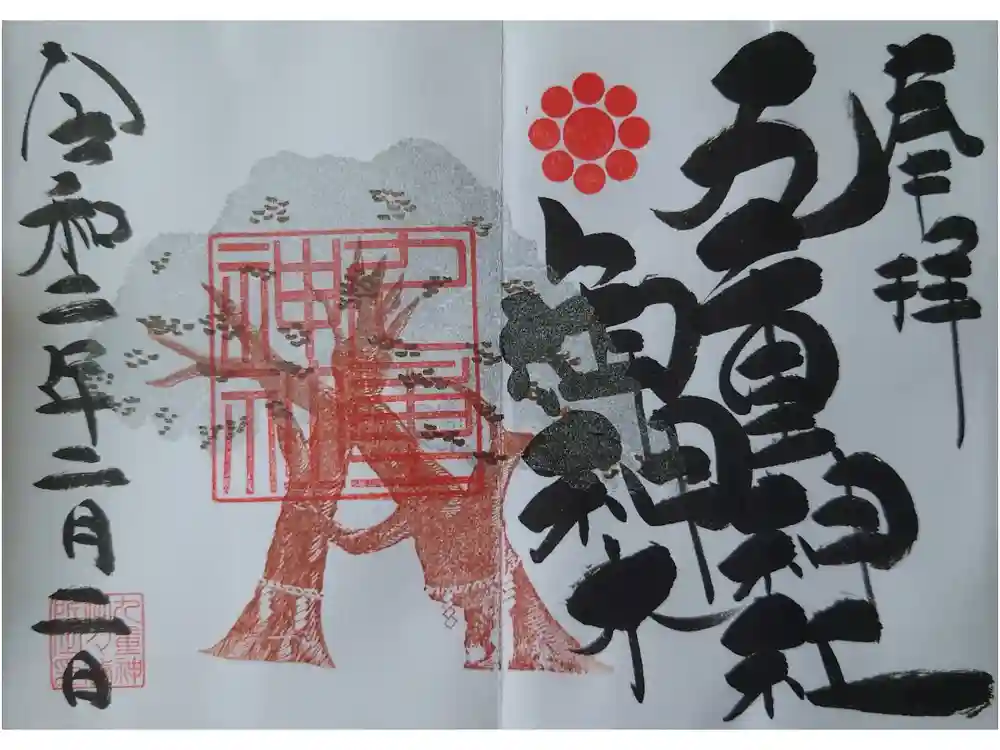 奉拝
九重神社
御神木
令和二年二月二日
九重
神社